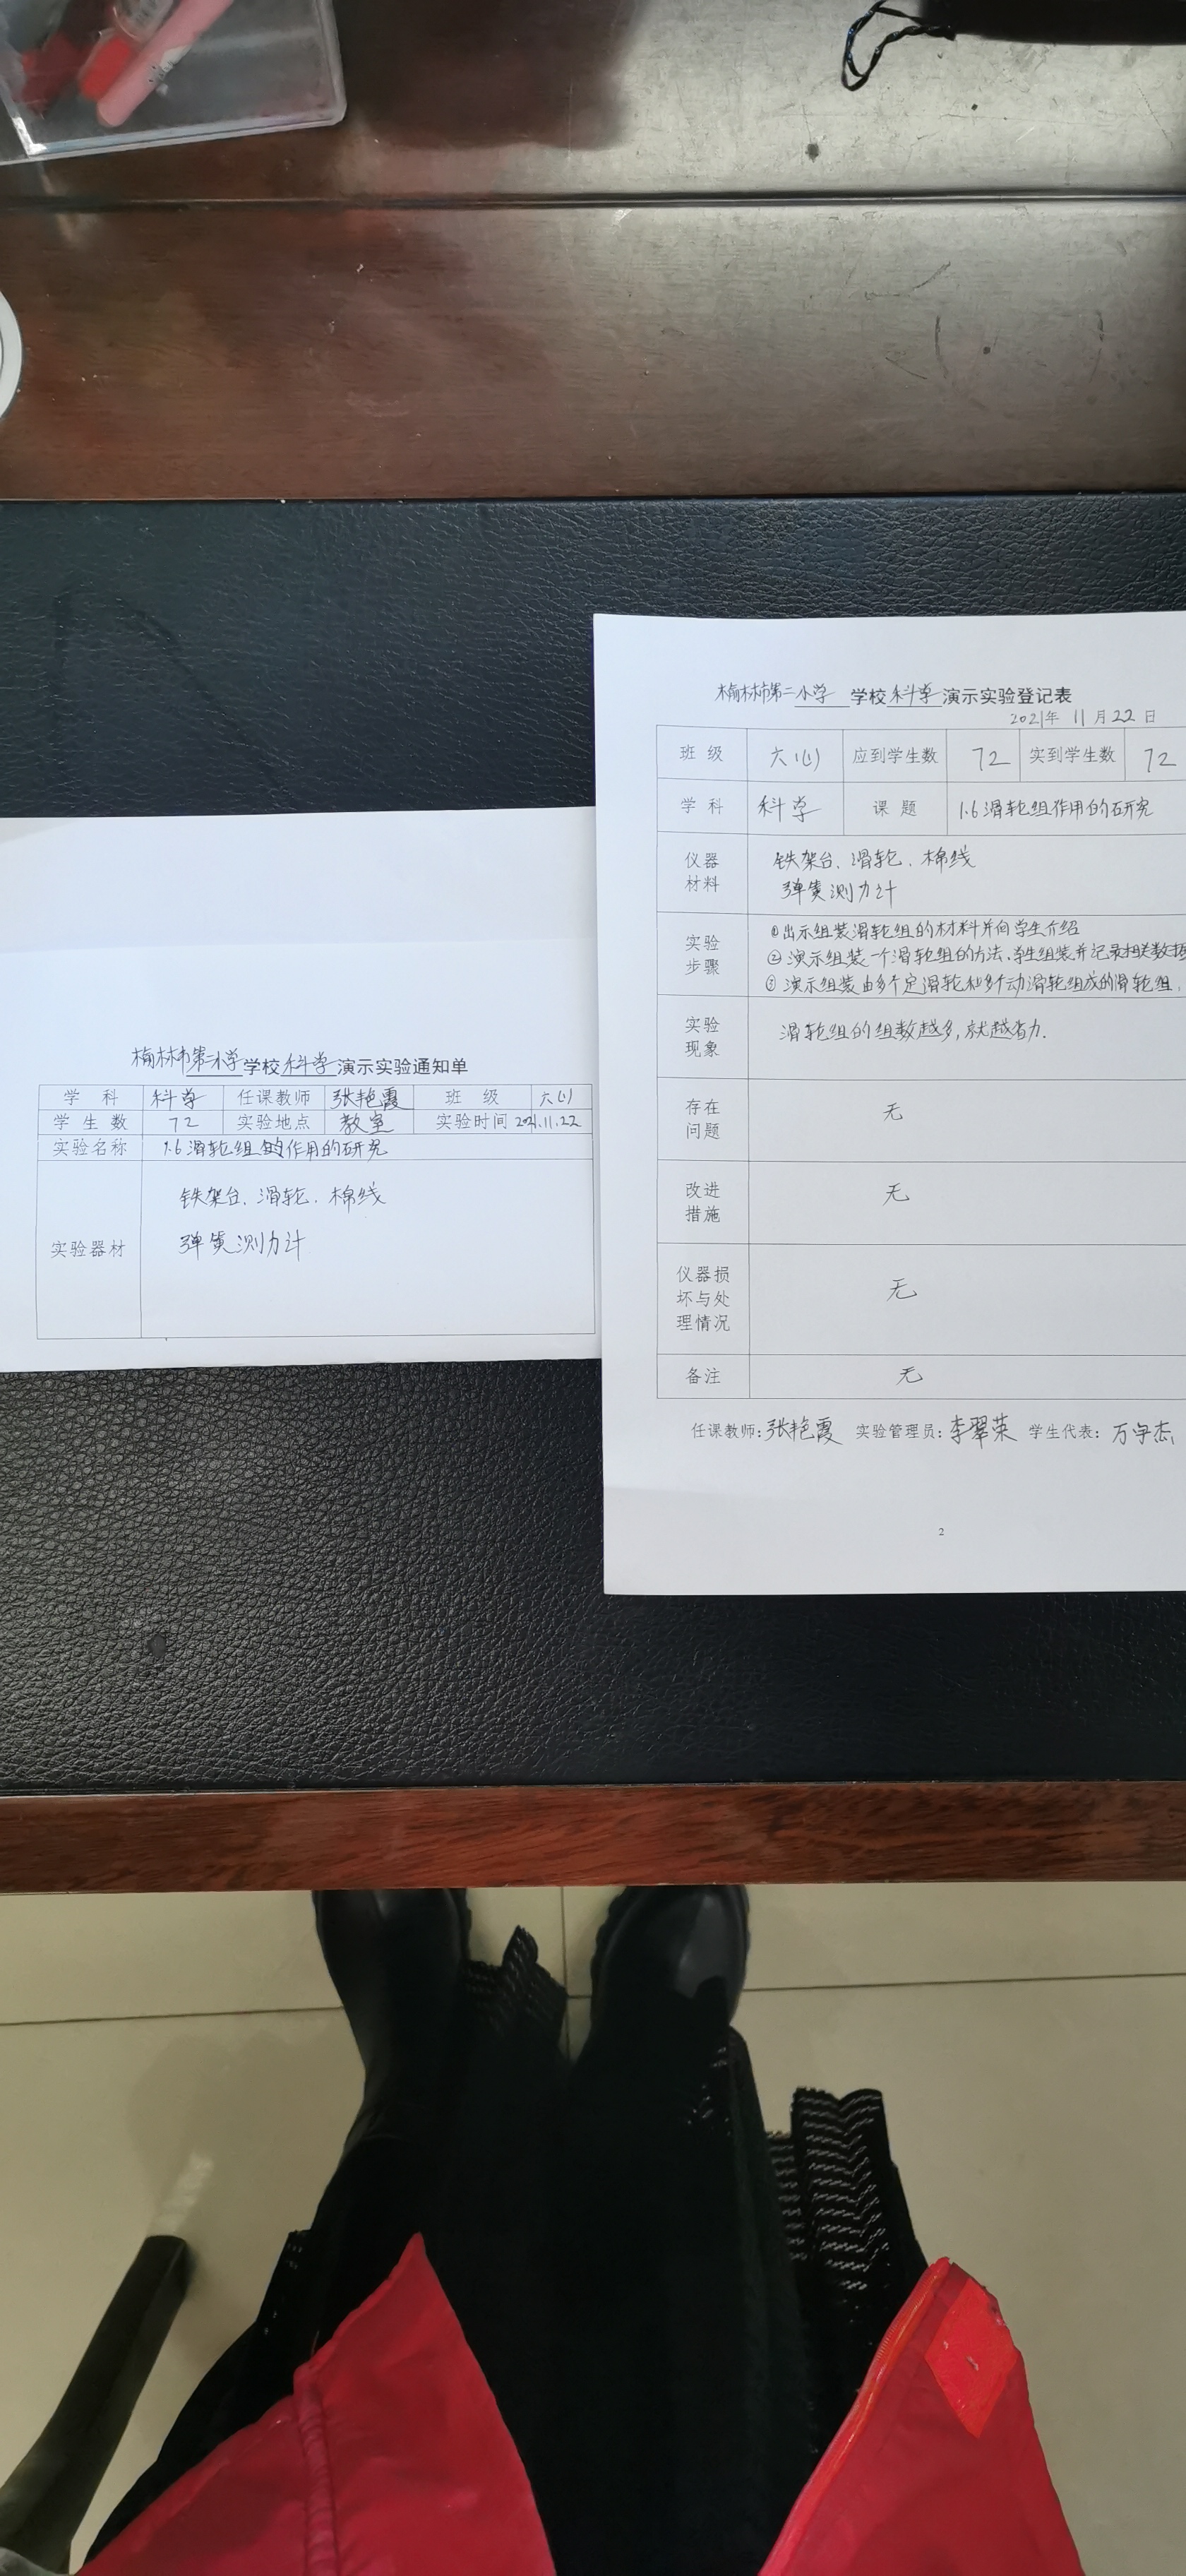 榆林市第二小学 学校 科学 演示实验通知单
学 科 科学 任课教师 张艳霞 班 级 六(1)
学 生 数 72 实验地点 教室 实验时间 2021.11.22
实验名称 1.6 滑轮组作用的研究
实验器材 铁架台、滑轮、棉线
弹簧测力计
榆林市第二小学 学校 科学 演示实验登记表
2021年 11月22日
班 级 六(1) 应到学生数 72 实到学生数 72
学 科 科学 课 题 1.6 滑轮组作用的研究
仪器材料 铁架台、滑轮、棉线
弹簧测力计
实验步骤 ①出示组装滑轮组的材料并向学生介绍
②演示组装一个滑轮组的方法,学生组装并记录相关数据
③演示组装由多个定滑轮和多个动滑轮组成的滑轮组,
实验现象 滑轮组的组数越多,就越省力.
存在问题 无
改进措施 无
仪器损坏与处理情况 无
备注 无
任课教师:张艳霞 实验管理员:李翠荣 学生代表:万宇杰
2